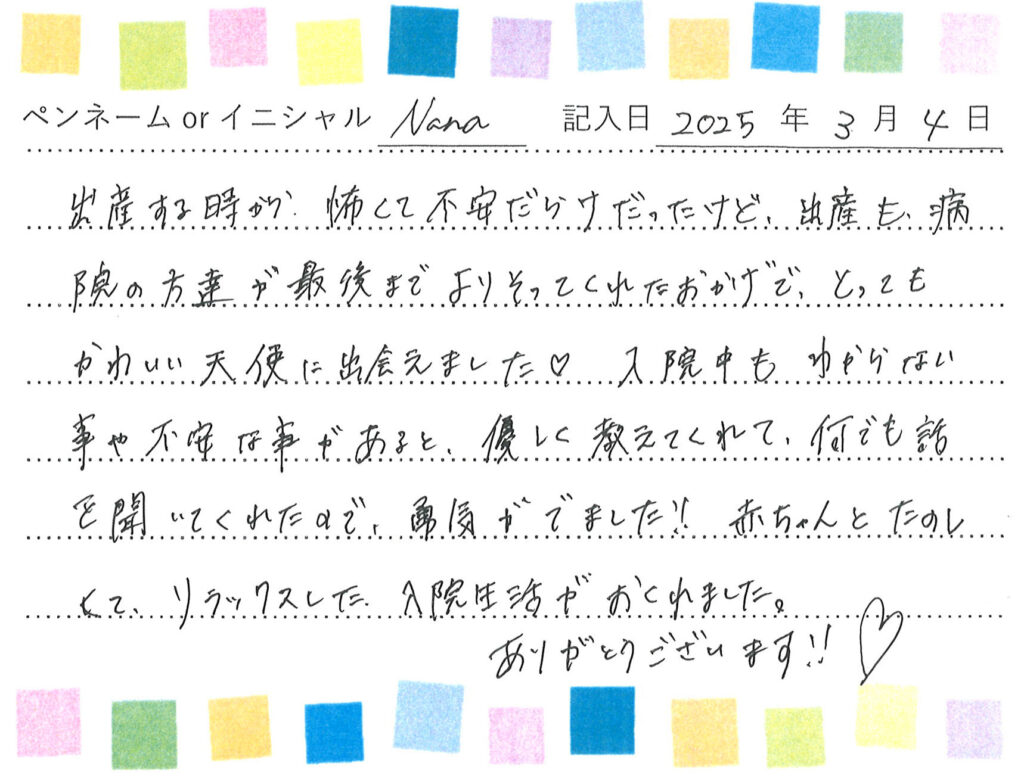 ペンネーム or イニシャル Nana 記入日 2025 年 3 月 4 日
出産する時から、怖くて不安だらけだったけど、出産も、病
院の方達が最後までよりそってくれたおかげで、とっても
かわいい天使に出会えました♡ 入院中もわからない
事や不安な事があると、優しく教えてくれて、何でも話
を聞いてくれたので、勇気がでました!! 赤ちゃんとたのし
くて、リラックスした入院生活がおくれました。
ありがとうございます!! ♡